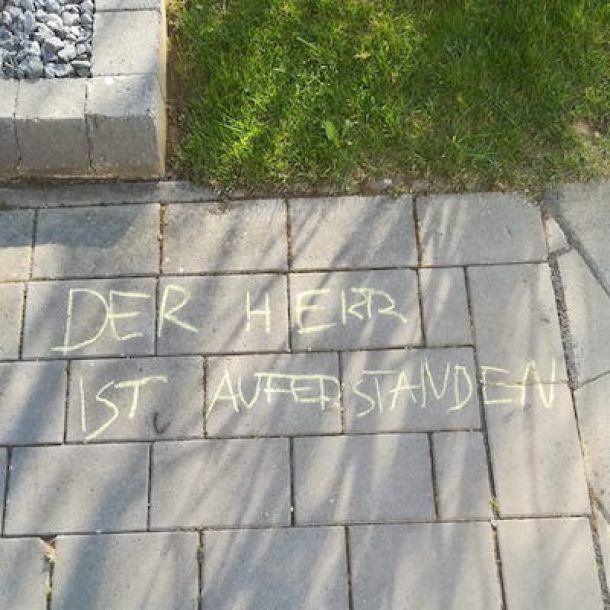 DER HERR
IST AUFERSTANDEN